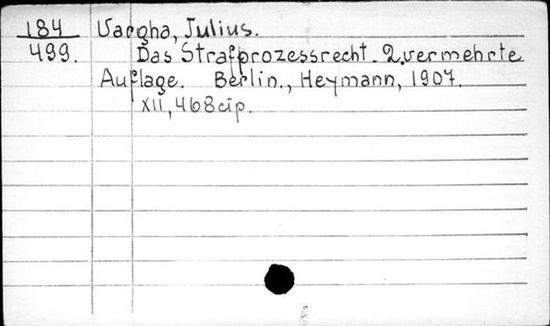 184 Vargha, Julius.
499. Das Strafprozessrecht. 2. vermehrte
Auflage. Berlin., Heymann, 1907.
XII, 468 стр.